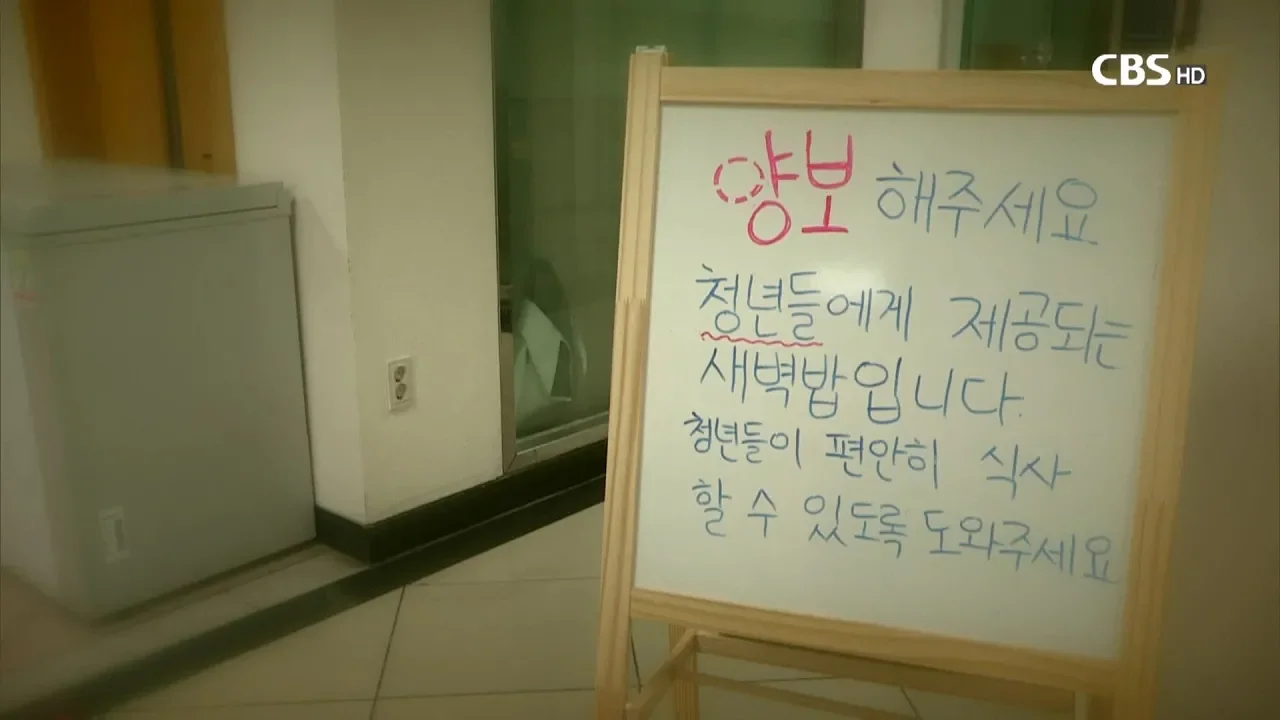 CBS HD
양보 해주세요
청년들에게 제공되는
새벽밥입니다.
청년들이 편안히 식사
할 수 있도록 도와주세요